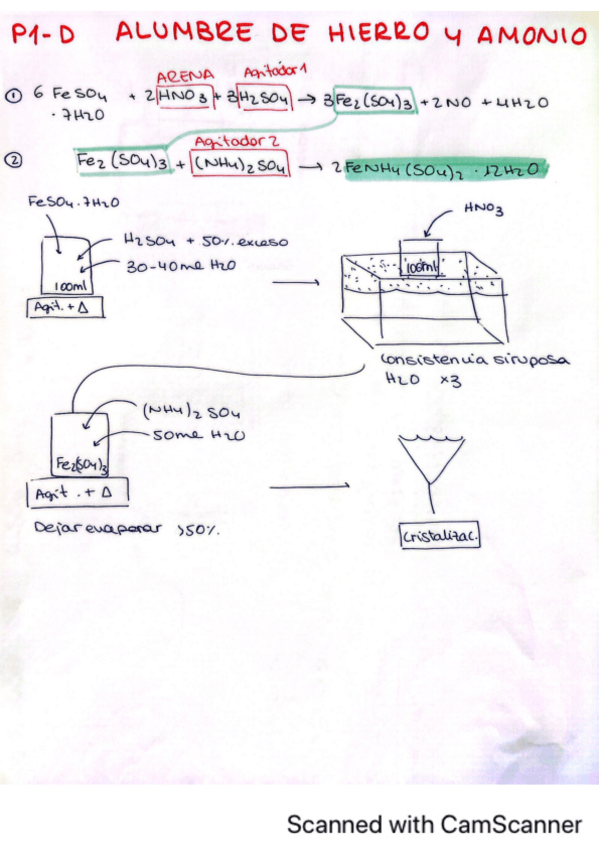 P1-D ALUMBRE DE HIERRO y AMONIO
ARENA Agitador 1
① 6 FeSO4 · 7H2O + 2 HNO3 + 3 H2SO4 → 3 Fe2(SO4)3 + 2NO + 4H2O
Agitador 2
② Fe2(SO4)3 + (NH4)2SO4 → 2 FeNH4(SO4)2 · 12H2O
FeSO4·7H2O
H2SO4 + 50% exceso
30-40ml H2O
100ml
Agit. + Δ
HNO3
100ml
consistencia siruposa
H2O x3
(NH4)2SO4
50ml H2O
Fe2(SO4)3
Agit. + Δ
Dejar evaporar >50%
cristalizac.
Scanned with CamScanner